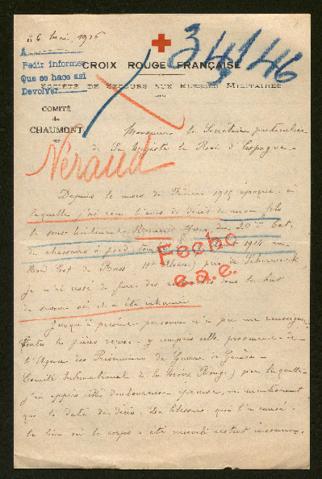 6 Mai 1916
34146
A
Pedir informe
Que se hace asi
Devolver
CROIX ROUGE FRANÇAISE
SOCIÉTÉ DE SECOURS AUX BLESSÉS MILITAIRES
COMITÉ
de
CHAUMONT
Monsieur le Secrétaire particulier
de Sa Majesté le Roi d'Espagne
Néraud
Depuis le mois de Février 1915 époque à
laquelle j'ai reçu l'avis de décès de mon fils
le sous lieutenant
de chasseurs à pied 1914 au
Nord Est de
je n'ai cessé de faire des dans le but
de savoir où il a été inhumé
Fecho
e.a.e.
Jusqu'à présent personne n'a pu me renseigner
toutes les pièces reçues y compris celle provenant de
l'Agence des Prisonniers de Guerre de Genève
Comité International de la Croix Rouge) par laquelle
j'ai appris cette douloureuse épreuve, ne mentionnent
que la date du décès. La blessure qui l'a causé
le lieu où le corps a été enseveli restent inconnus.